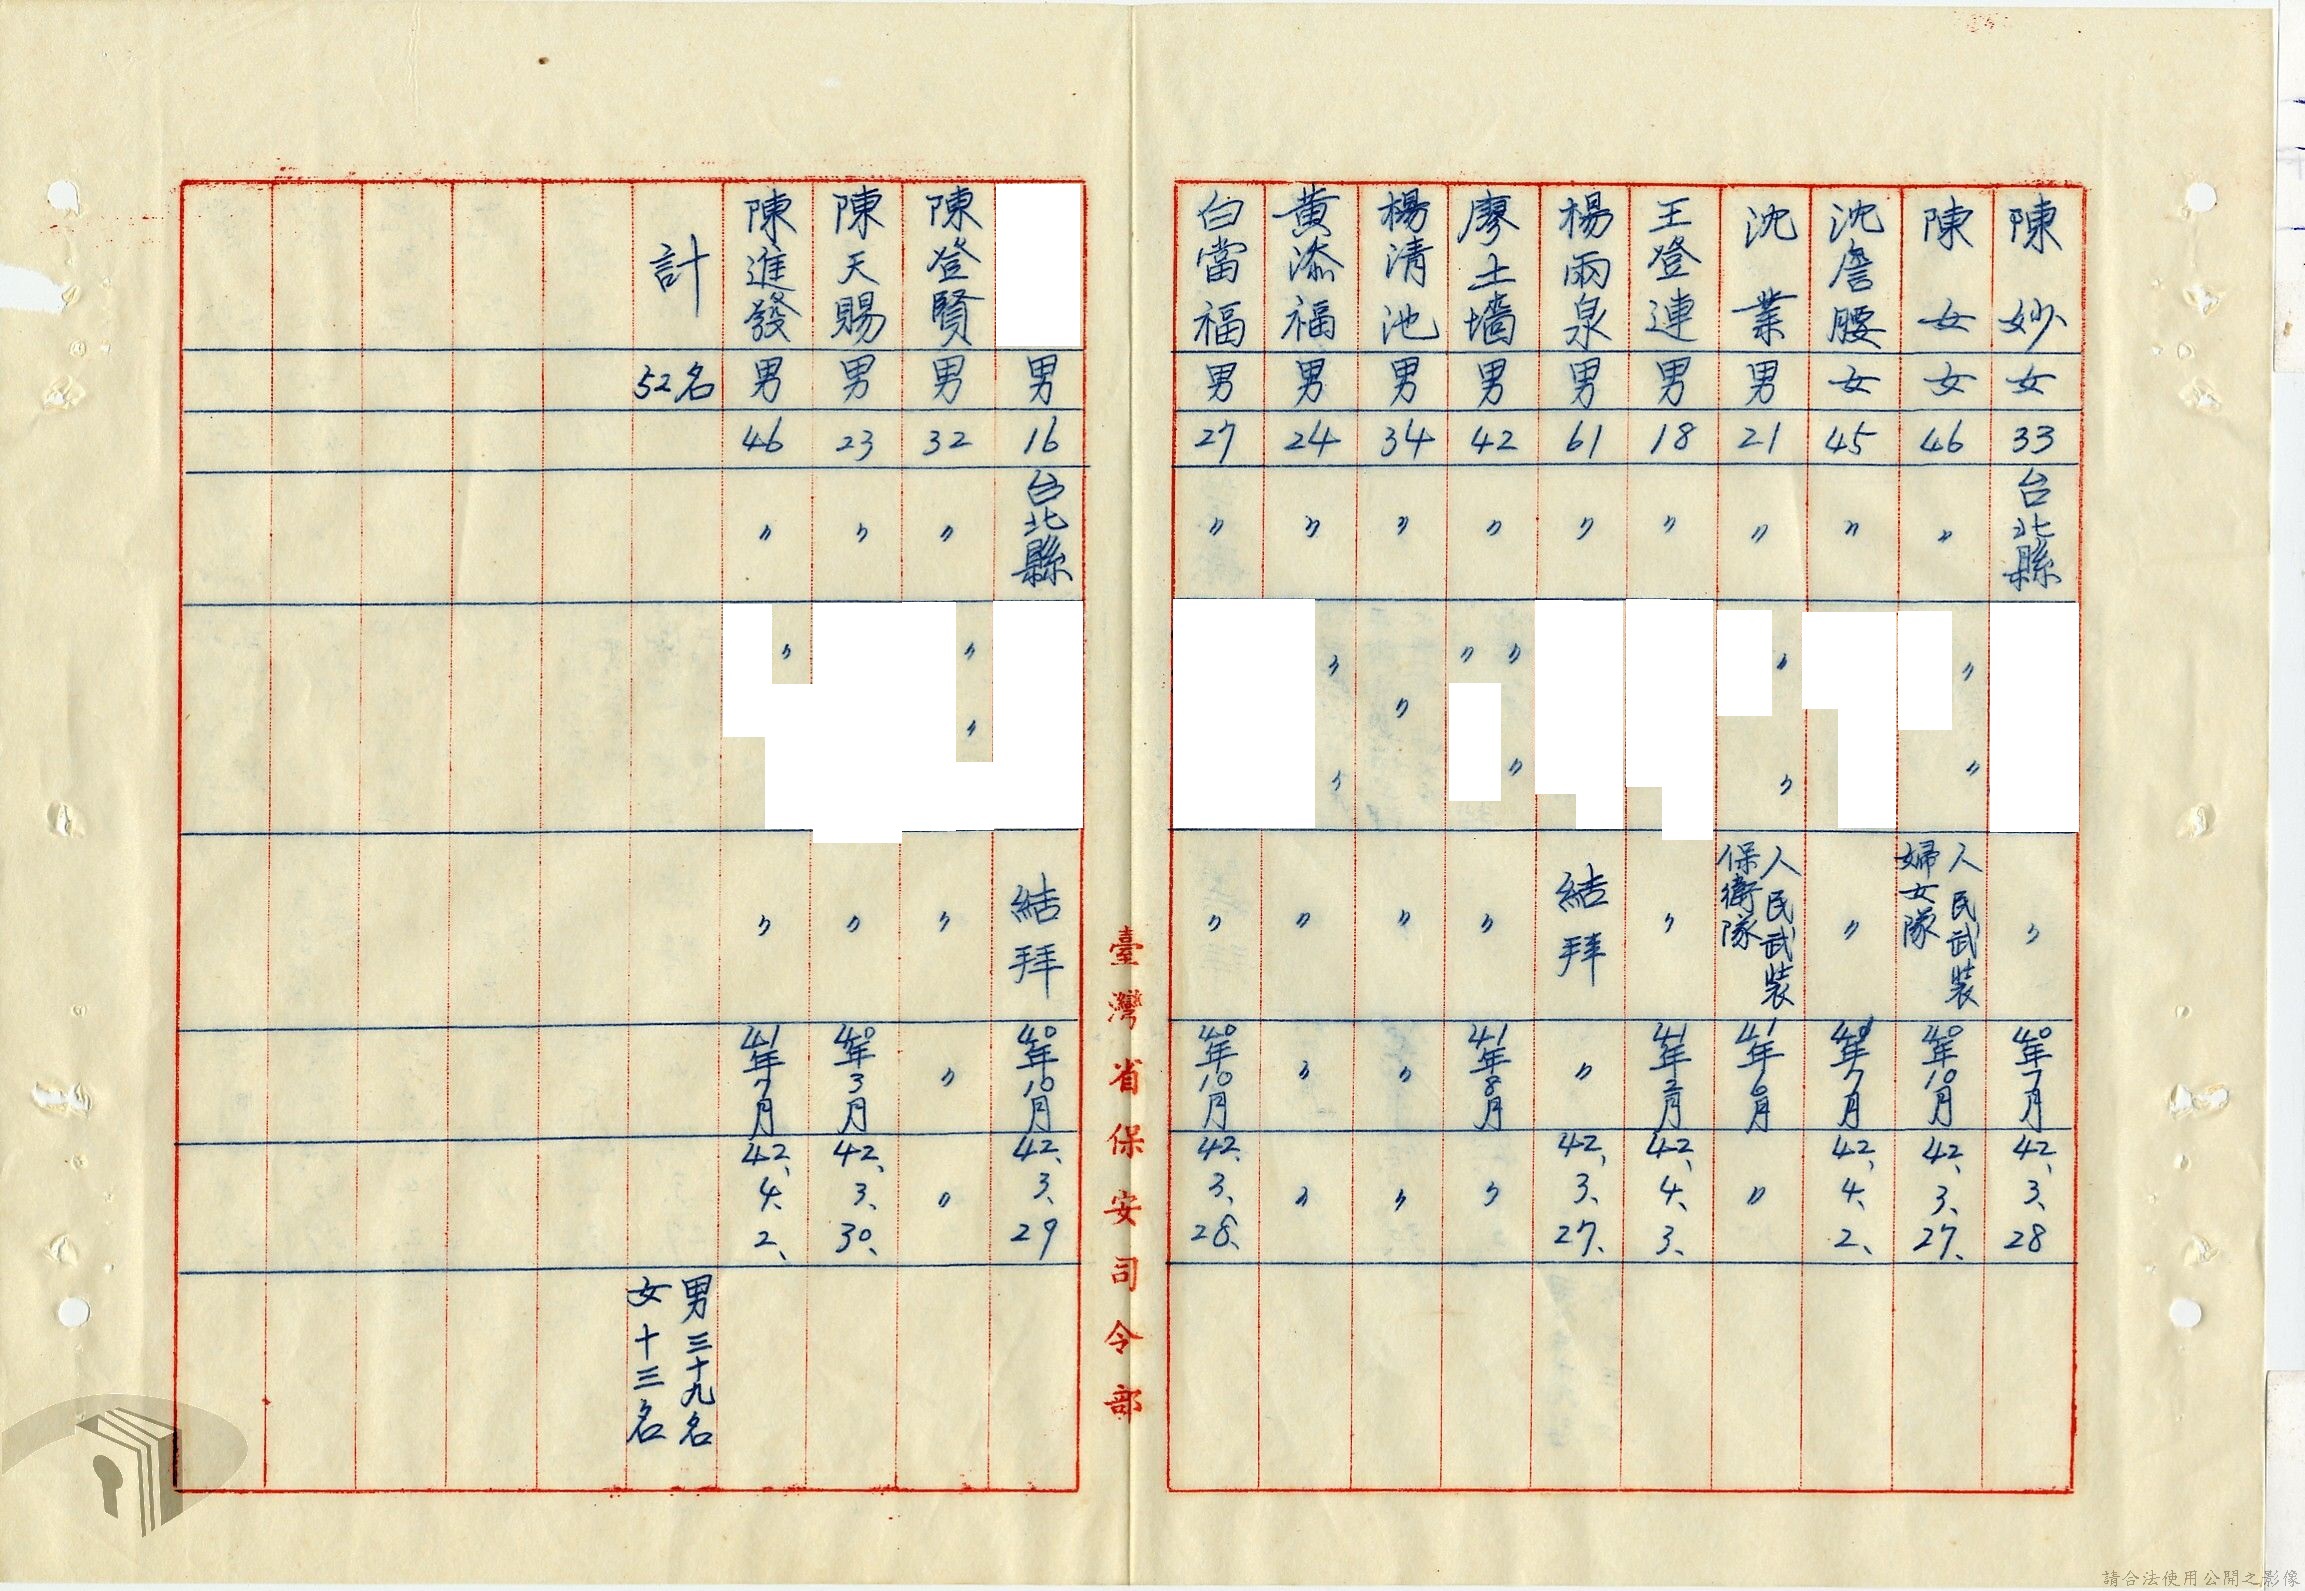 陳妙 女 33 台北縣 〃 40年7月 42、3、28
陳女 女 46 〃 〃 〃 人民武裝婦女隊 40年10月 42、3、27、
沈詹腰 女 45 〃 〃 40年7月 42、4、2、
沈業 男 21 〃 〃 〃 人民武裝保衛隊 41年6月 〃
王登連 男 18 〃 〃 41年2月 42、4、3、
楊兩泉 男 61 〃 結拜 〃 42、3、27、
廖土墻 男 42 〃 〃 〃 〃 〃 41年8月 〃
楊清池 男 34 〃 〃 〃 〃 〃
黃添福 男 24 〃 〃 〃 〃 〃 〃
白當福 男 27 〃 〃 40年10月 42、3、28、
臺灣省保安司令部
男 16 台北縣 結拜 40年10月 42、3、29
陳登賢 男 32 〃 〃 〃 〃 〃 〃
陳天賜 男 23 〃 〃 40年3月 42、3、30、
陳進發 男 46 〃 〃 〃 41年7月 42、4、2、
計 52名 男三十九名
女十三名
請合法使用公開之影像